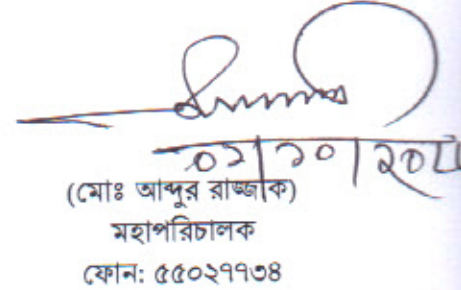 ০১|১০|২০
(মোঃ আব্দুর রাজ্জাক)
মহাপরিচালক
ফোন: ৫৫০২৭৭৩৪